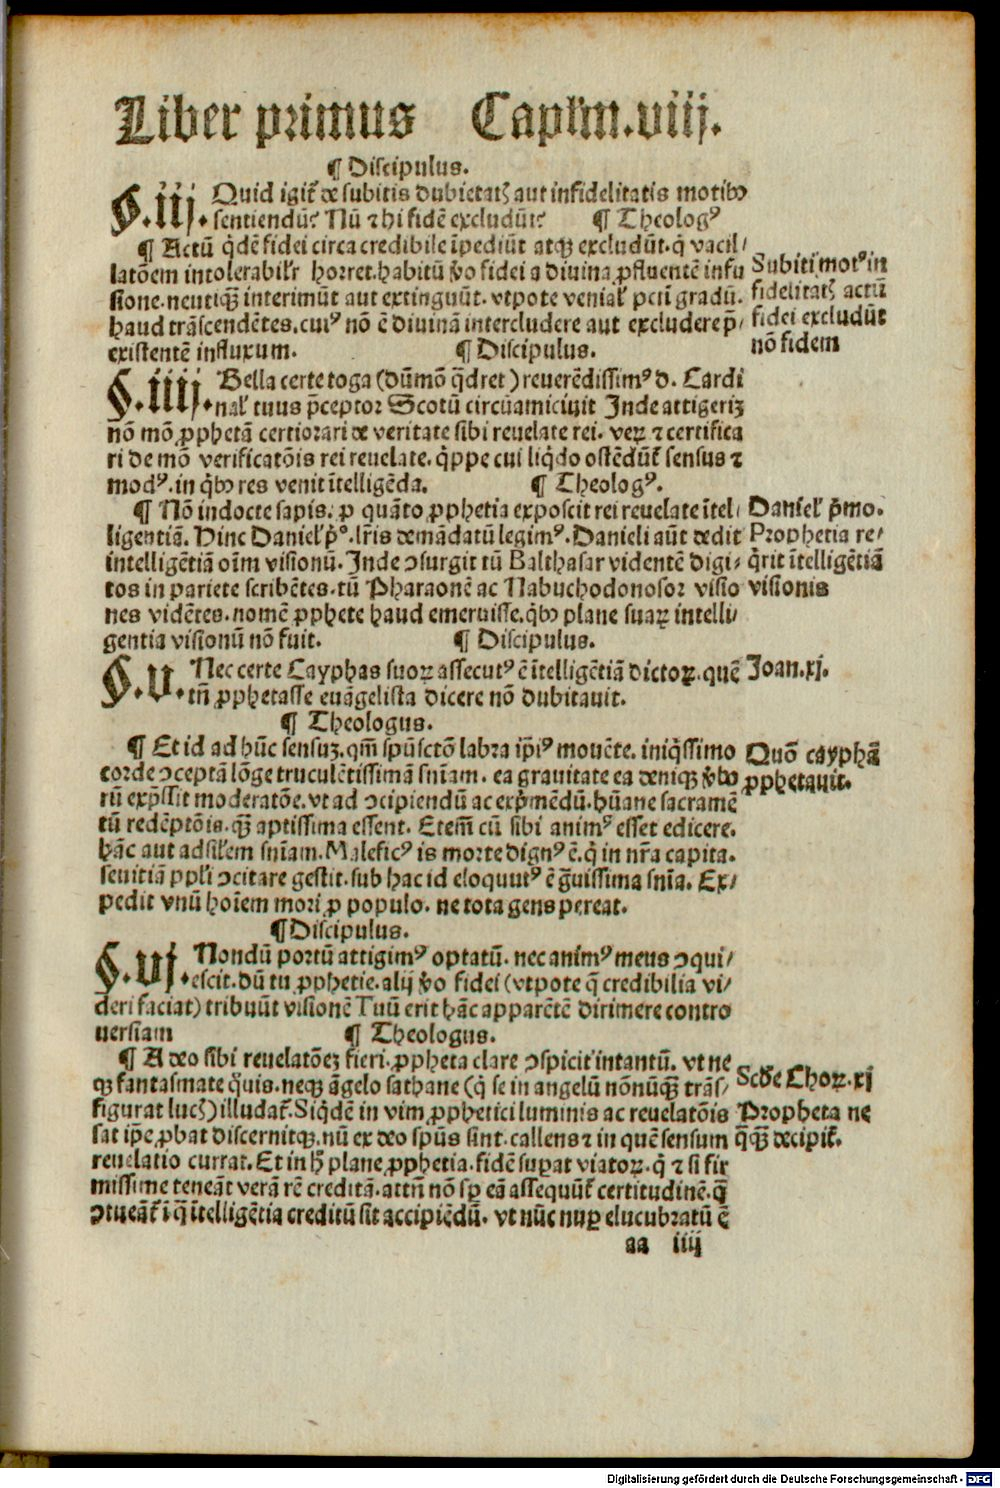 Liber primus Caplm̄.viij.
¶ Discipulus.
§.iij. Quid igit᷑ de subitis dubietatꝭ aut infidelitatis motibꝰ
sentiendū? Nū ⁊ hi fidē excludūt? ¶ Theologꝰ
¶ Actū q̇dē fidei circa credibile īpediūt atqꝫ excludūt. q̇ vacil/
latōem intolerabilʼr horret. habitū v̊o fidei a diuina ꝓfluentē infu
sione. neutiqꝫ̄ interimūt aut extinguūt. vtpote venialʼ pctī gradū.
haud trāscendētes. cuiꝰ nō ē diuinā intercludere aut excludere p̄/
existentē influxum. ¶ Discipulus.
Subiti motꝰ in
fidelitatꝭ actū
fidei excludūt
nō fidem
§.iiij. Bella certe toga (dūmō q̄dret) reuerēdissimꝰ d. Cardi
nalʼ tuus p̄ceptor Scotū circūamiciuit Inde attigeriꝫ
nō mō ꝓphetā certiorari de veritate sibi reuelate rei. veꝝ ⁊ certifica
ri de mō verificatōis rei reuelate. q̇ppe cui liq̇do ostēdūt᷑ sensus ⁊
modꝰ. in q̇bꝰ res venit ītelligēda. ¶ Theologꝰ.
¶ Nō indocte sapis. ꝓ quāto ꝓphetia exposcit rei reuelate ītel/
ligentiā. Hinc Danielʼ p̊ꝰ. lr̄is demādatū legimꝰ. Danieli aūt dedit
intelligētiā oīm visionū. Inde ꝯsurgit tū Balthasar videntē digi/
tos in pariete scribētes. tū Pharaonē ac Nabuchodonosor visio
nes vidētes. nomē ꝓphete haud emeruisse. q̇bꝰ plane suaꝝ intelli/
gentia visionū nō fuit. ¶ Discipulus.
Danielʼ p̊mo.
Prophetia re/
q̇rit ītelligētiā
visionis
§.v. Nec certe Cayphas suoꝝ assecutꝰ ē ītelligētiā dictoꝝ. quē
tn̄ ꝓphetasse euāgelista dicere nō dubitauit.
Joan.xj.
¶ Theologus.
¶ Et id ad hūc sensuꝫ. qm̄ spūsctō labra ip̄iꝰ mouēte. iniq̇ssimo
corde ꝯceptā lōge truculētissimā sn̄iam. ea grauitate ea deniqꝫ v̊boꝝ
rū exp̄ssit moderatōe. vt ad ꝯcipiendū ac exp̊mēdū. hūane sacramē
tū redēptōis. qꝫ̄ aptissima essent. Etem̄ cū sibi animꝰ esset edicere.
hāc aut ad silʼem sn̄iam. Maleficꝰ is morte dignꝰ ē. q̇ in nr̄a capita.
seuitiā ppl̄i ꝯcitare gestit. sub hac id eloquutꝰ ē ḡuissima sn̄ia. Ex/
pedit vnū hoīem mori ꝓ populo. ne tota gens pereat.
Quō cayphā
ꝓphetauit.
¶ Discipulus.
§.vj. Nondū portū attigimꝰ optatū. nec animꝰ meus ꝯqui/
escit. dū tu ꝓphetie. alij v̊o fidei (vtpote q̄ credibilia vi/
deri faciat) tribuūt visionē Tuū erit hāc apparētē dirimere contro
uersiam ¶ Theologus.
¶ A deo sibi reuelatōeꝫ fieri. ꝓpheta clare ꝯspicit intantū. vt ne
qꝫ fantasmate q̊uis. neqꝫ āgelo sathane (q̇ se in angelū nōnūqꝫ̄ trās/
figurat lucꝭ) illudat᷑. Siq̇dē in vim ꝓphetici luminis ac reuelatōis
sat ip̄e ꝓbat discernitqꝫ. nū ex deo spūs sint. callens ⁊ in quē sensum
reuelatio currat. Et in hͦ plane ꝓphetia. fidē suꝑat viatoꝝ. q̇ ⁊ si fir
missime teneāt verā rē creditā. attn̄ nō sꝑ eā assequūt᷑ certitudinē. q̄
ꝯtueāt᷑ ī q̄ ītelligētia creditū sit accipiēdū. vt nūc nuꝑ elucubratū ē
Scd̄e Choꝝ.xj
Propheta ne
q̄qꝫ̄ decipit᷑.
aa iiij
Digitalisierung gefördert durch die Deutsche Forschungsgemeinschaft - DFG